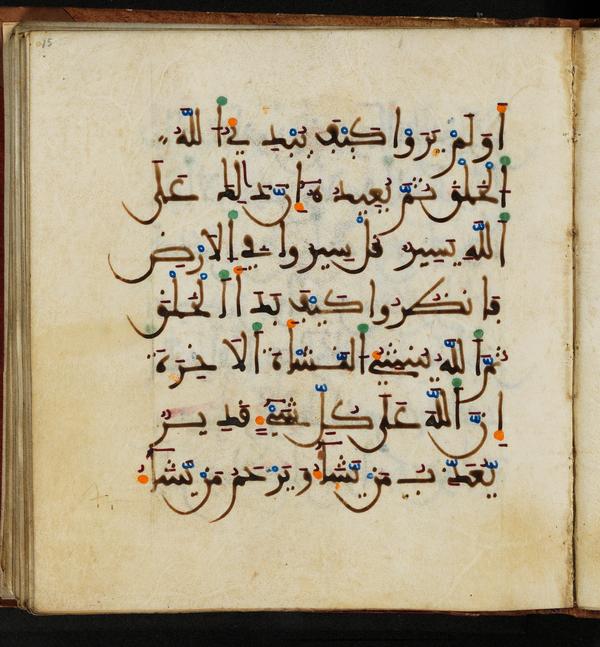 15
اَوَلَمْ يَرَوْاْ كَيْفَ يُبْدِۓُ اُ۬للَّهُ
اُ۬لْخَلْقَ ثُمَّ يُعِيدُهُۥٓ إِنَّ ذَٰلِكَ عَلَى
اَ۬للَّهِ يَسِيرٌ قُلْ سِيرُواْ فِے اِ۬لَارْضِ
فَانظُرُواْ كَيْفَ بَدَأَ اَ۬لْخَلْقَ
ثُمَّ اَ۬للَّهُ يُنشِۓُ اُ۬لنَّشْأَةَ اَ۬لَاخِرَةَ
إِنَّ اَ۬للَّهَ عَلَىٰ كُلِّ شَےْءٖ قَدِيرٌ
يُعَذِّبُ مَنْ يَّشَآءُ وَيَرْحَمُ مَنْ يَّشَآءُ